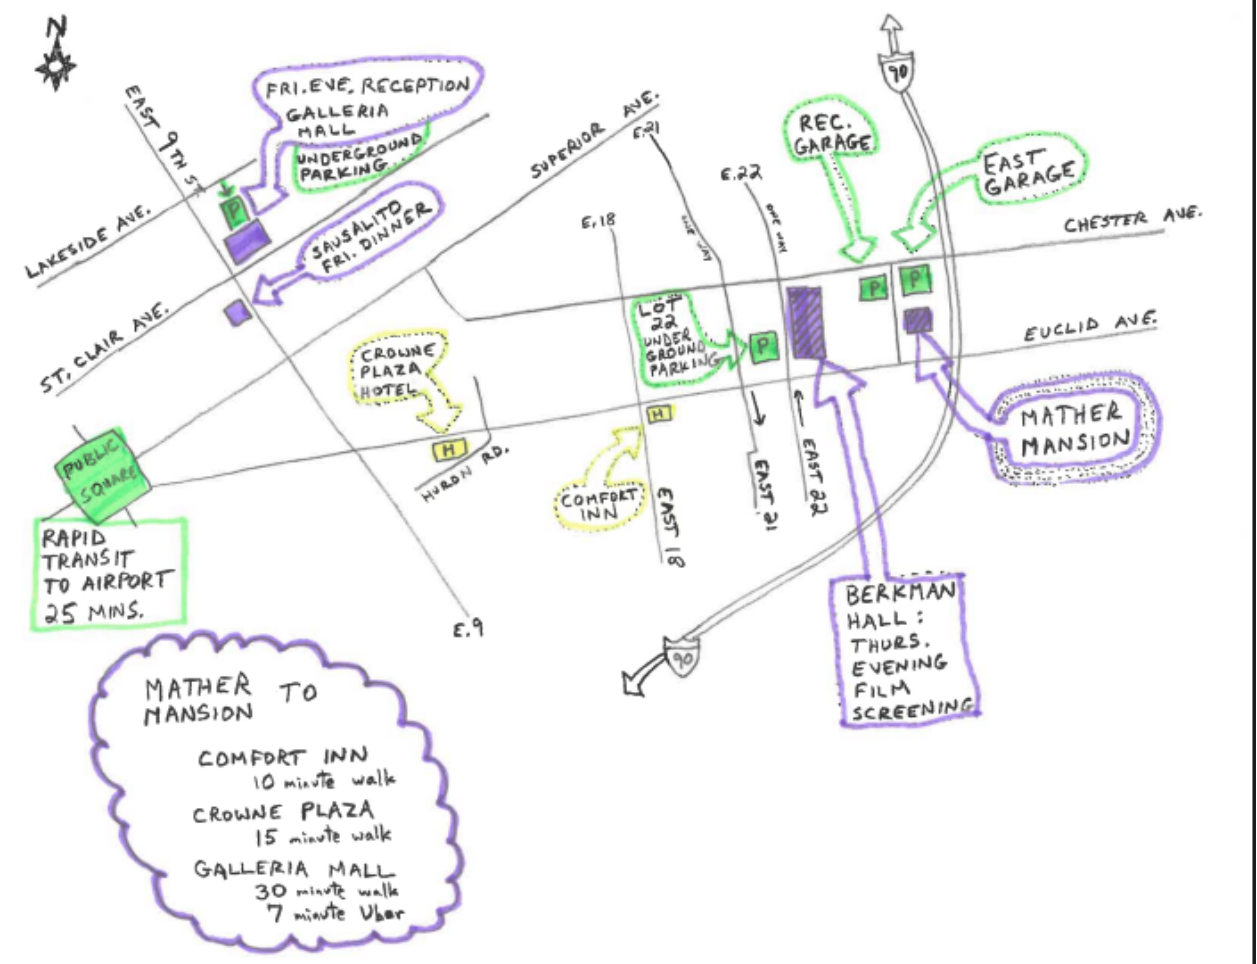 N
EAST 9TH ST.
FRI. EVE. RECEPTION
GALLERIA
MALL
UNDERGROUND
PARKING
P
LAKESIDE AVE.
SAUSALITO
FRI. DINNER
ST. CLAIR AVE.
SUPERIOR AVE.
E.21
E.22
E.18
ONE WAY
ONE WAY
90
REC.
GARAGE
EAST
GARAGE
CHESTER AVE.
P
P
LOT
22
UNDER
GROUND
PARKING
P
EUCLID AVE.
CROWNE
PLAZA
HOTEL
H
HURON RD.
H
COMFORT
INN
EAST 18
EAST 21
EAST 22
MATHER
MANSION
PUBLIC
SQUARE
RAPID
TRANSIT
TO AIRPORT
25 MINS.
E.9
90
BERKMAN
HALL:
THURS.
EVENING
FILM
SCREENING
MATHER TO
MANSION
COMFORT INN
10 minute walk
CROWNE PLAZA
15 minute walk
GALLERIA MALL
30 minute walk
7 minute Uber